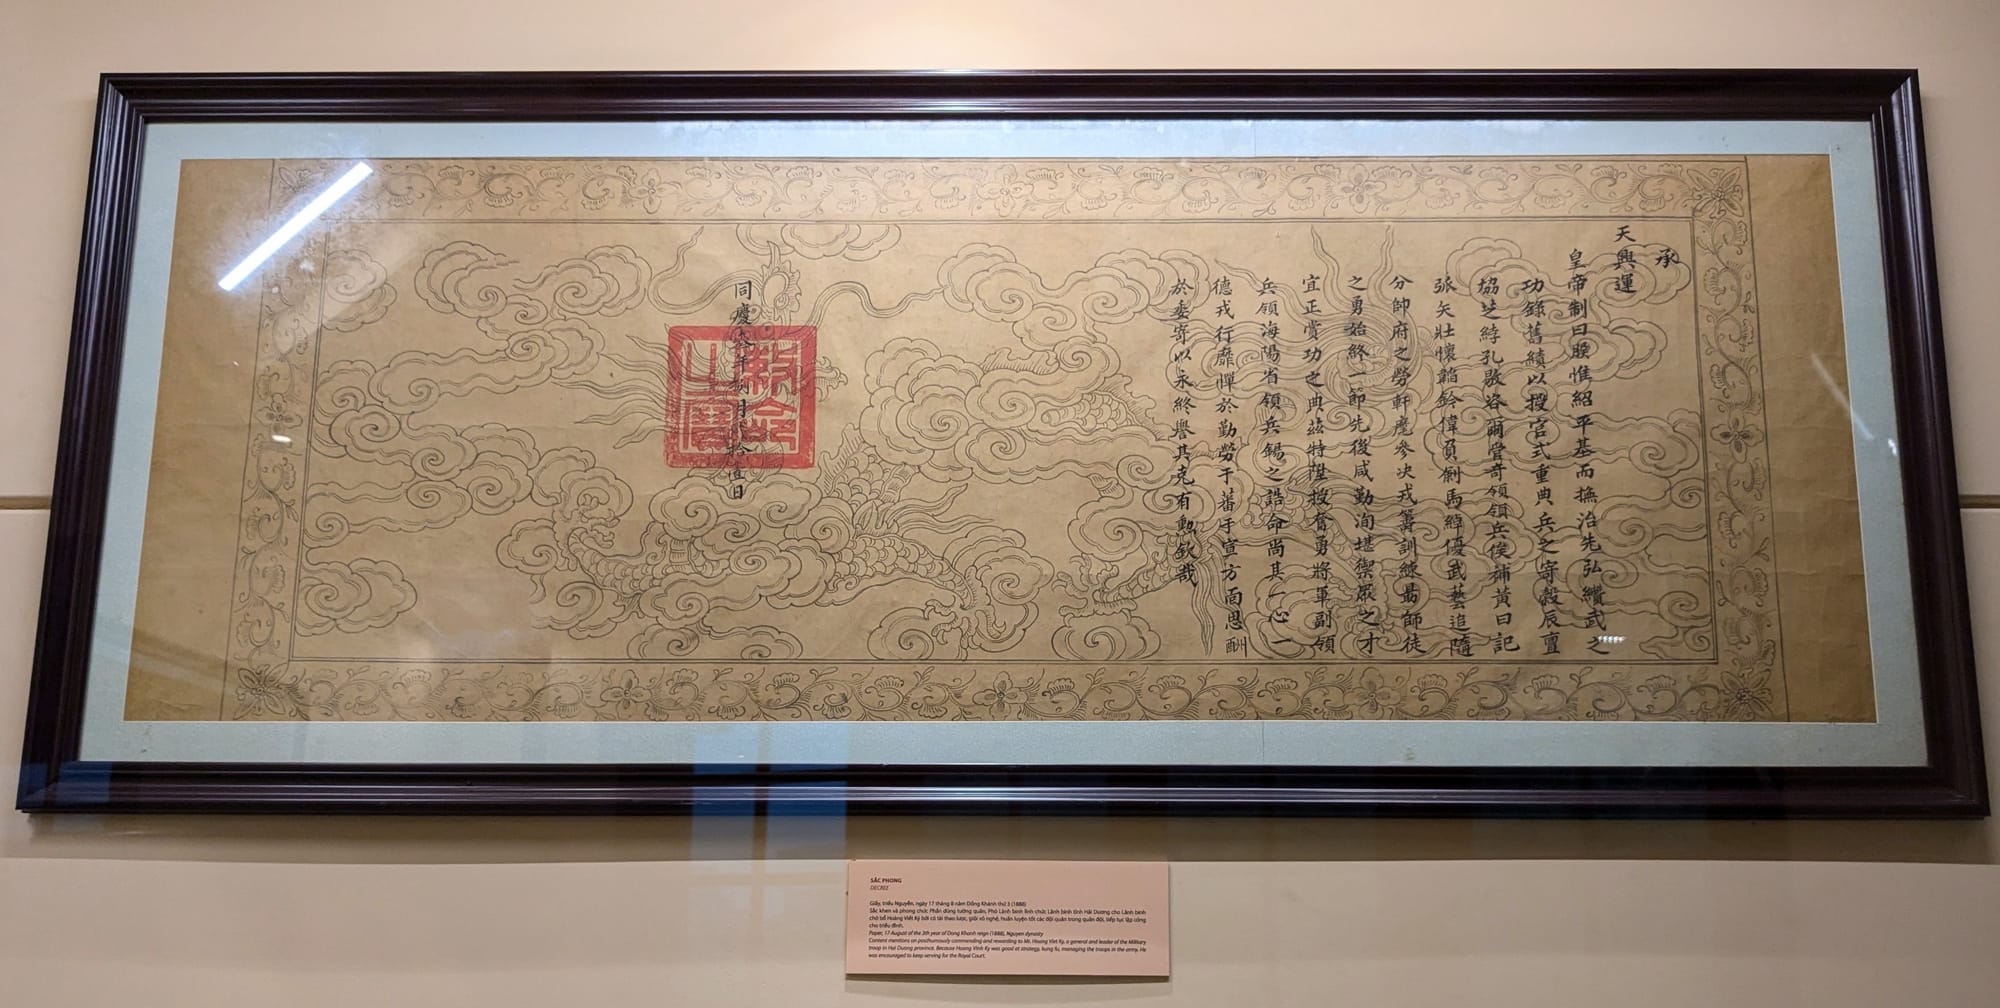 承
天興運
皇帝制曰朕惟紹平基而撫治先弘纘武之
功錄舊績以授官式重典兵之寄穀辰亶
協芝綍孔敭咨爾嘗奇領領兵俟補黃曰記
張矢壯懷韜鈐偉負劘馬綽優武藝追隨
分帥府之勞軒麾參决戎籌訓練昜師徒
之勇始終一節先後咸勤洵堪禦眾之才
宜正賞功之典茲特陞授奮勇將軍副領
兵領海陽省領兵錫之誥命尚其一心一
德戎行靡憚於勤勞于蕃于宣方面思酬
於委寄以永終譽其克有勳欽哉
同慶叁年捌月拾日
敕命之寶
SẮC PHONG
DECREE
Giấy, triều Nguyễn, ngày 17 tháng 8 năm Đồng Khánh thứ 3 (1888)
Sắc khen và phong chức Phấn dũng tướng quân, Phó Lãnh binh lĩnh chức Lãnh binh tỉnh Hải Dương cho Lãnh binh
chờ bổ Hoàng Viết Ký bởi có tài thao lược, giỏi võ nghệ, huấn luyện tốt các đội quân trong quân đội, tiếp tục lập công
cho triều đình.
Paper, 17 August of the 3th year of Dong Khanh reign (1888), Nguyen dynasty
Content mentions on posthumously commending and rewarding to Mr. Hoang Viet Ky, a general and leader of the Military
troop in Hai Duong province. Because Hoang Vinh Ky was good at strategy, kung fu, managing the troops in the army. He
was encouraged to keep serving for the Royal Court.